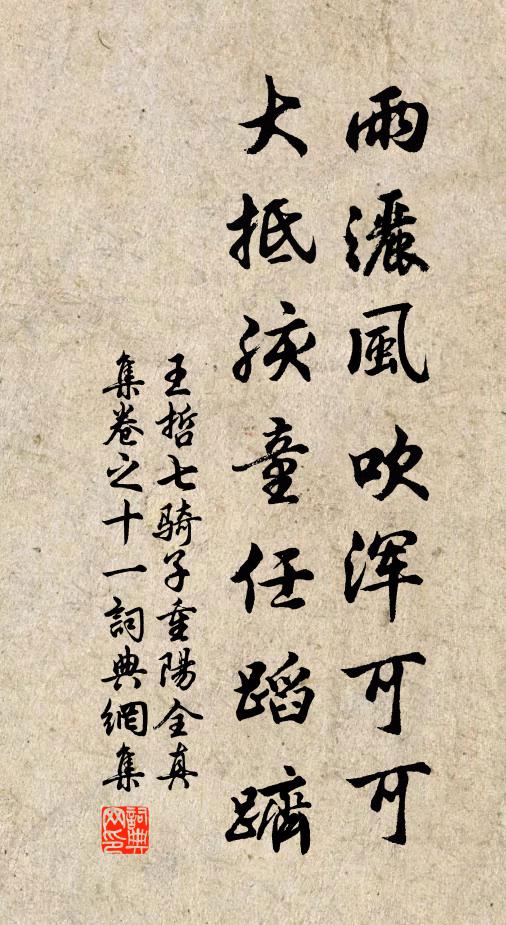 雨灑風吹渾可可
大抵孩童任蹈躋
王哲七骑子重陽全真
集卷之十一詞典網集
詞典
网印